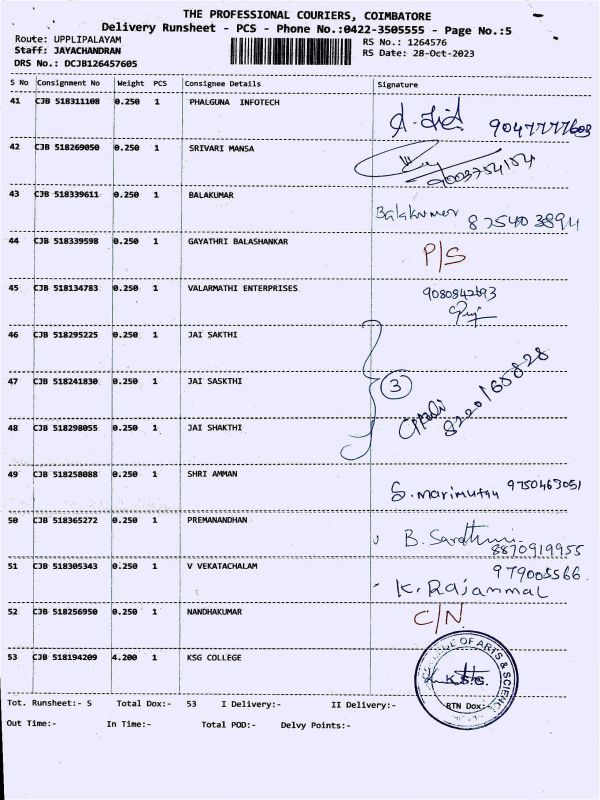 THE PROFESSIONAL COURIERS, COIMBATORE
Delivery Runsheet - PCS - Phone No.:0422-3505555 - Page No.:5
Route: UPPLIPALAYAM RS No.: 1264576
Staff: JAYACHANDRAN RS Date: 28-Oct-2023
DRS No.: DCJB126457605
S No Consignment No Weight PCS Consignee Details Signature
41 CJB 518311108 0.250 1 PHALGUNA INFOTECH 9047777603
42 CJB 518269050 0.250 1 SRIVARI MANSA 9003754154
43 CJB 518339611 0.250 1 BALAKUMAR Balakumar 8754038994
44 CJB 518339598 0.250 1 GAYATHRI BALASHANKAR P/S
45 CJB 518134783 0.250 1 VALARMATHI ENTERPRISES 9080842693
46 CJB 518295225 0.250 1 JAI SAKTHI
47 CJB 518241830 0.250 1 JAI SASKTHI 3 8220165828
48 CJB 518298055 0.250 1 JAI SHAKTHI
49 CJB 518258088 0.250 1 SHRI AMMAN S. Marimuthu 9750469051
50 CJB 518365272 0.250 1 PREMANANDHAN B. 8870919955
51 CJB 518305343 0.250 1 V VEKATACHALAM 979005566
K. Rajammal
52 CJB 518256950 0.250 1 NANDHAKUMAR C/N
53 CJB 518194209 4.200 1 KSG COLLEGE OF ARTS & SCIENCE
Tot. Runsheet:- 5 Total Dox:- 53 I Delivery:- II Delivery:- RTN Dox:-
Out Time:- In Time:- Total POD:- Delvy Points:-